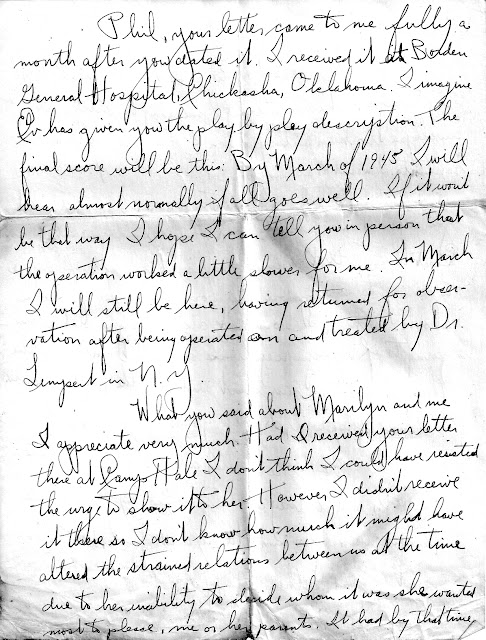 Phil, your letter came to me fully a
month after you dated it. I received it at Borden
General Hospital, Chickasha, Oklahoma. I imagine
Ev has given you the play by play description. The
final score will be this. By March of 1945 I will
hear almost normally if all goes well. If it won't
be that way I hope I can tell you in person that
the operation worked a little slower for me. In March
I will still be here, having returned for obser-
vation after being operated on and treated by Dr.
Lempert in N.Y.
What you said about Marilyn and me
I appreciate very much. Had I received your letter
there at Camp Hale I don't think I could have resisted
the urge to show it to her. However I didn't receive
it there so I don't know how much it might have
altered the strained relations between us at the time
due to her inability to decide whom it was she wanted
most to please, me or her parents. It had by that time,